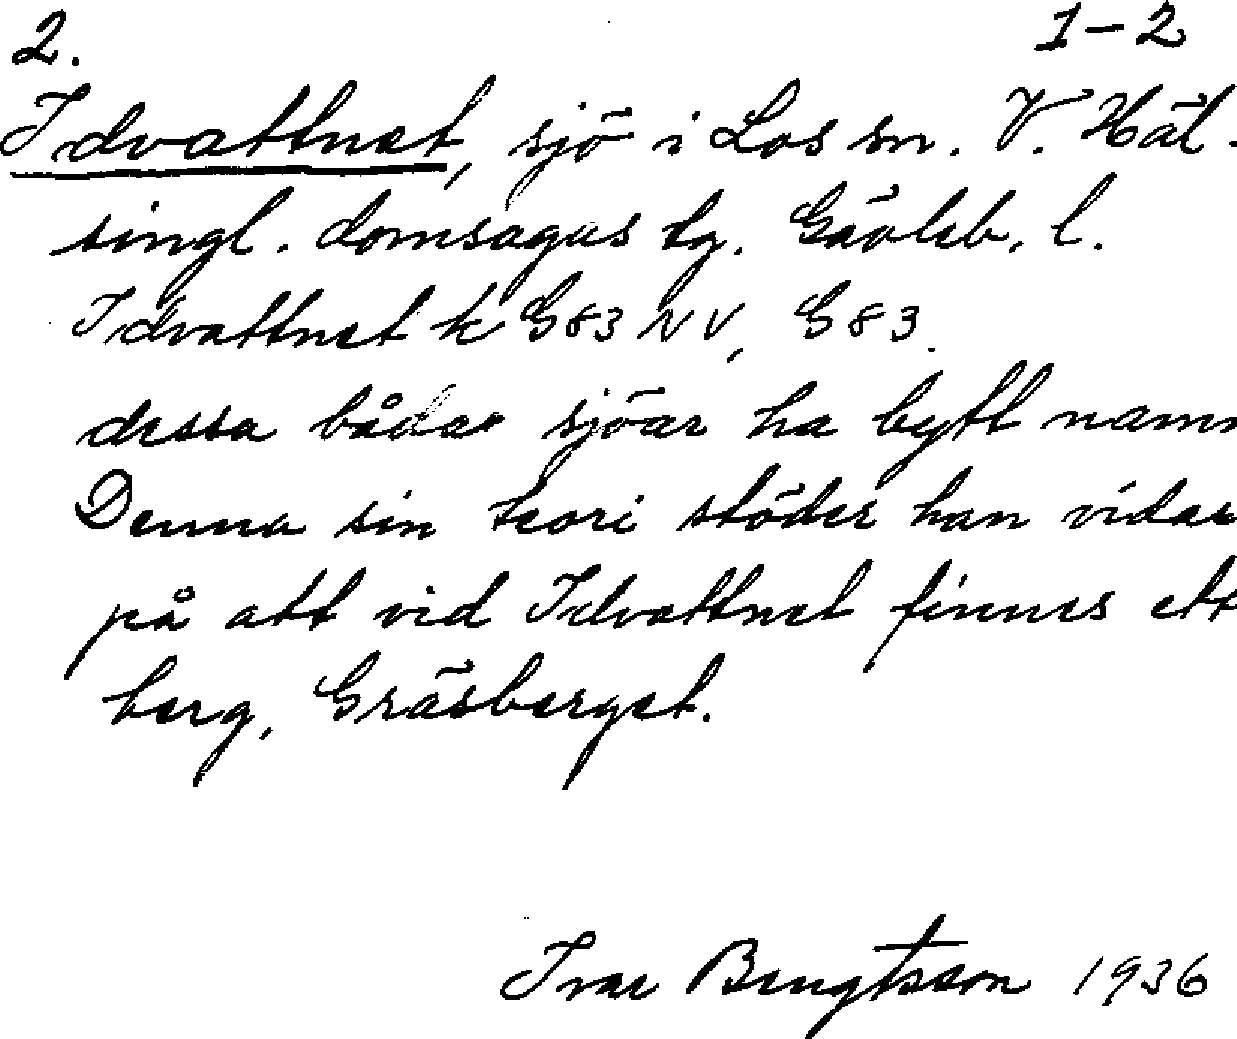 2. 1-2
Idvattnet, sjö i Los sn. V. Häl-
singl. domsagas tg. Gävleb. l.
Idvattnet k G83 NV, G83.
dessa bådar sjöar ha bytt namn
Denna sin teori stöder han vidare
på att vid Idvattnet finnes ett
berg, Gräsberget.
Ivar Bengtsson 1936